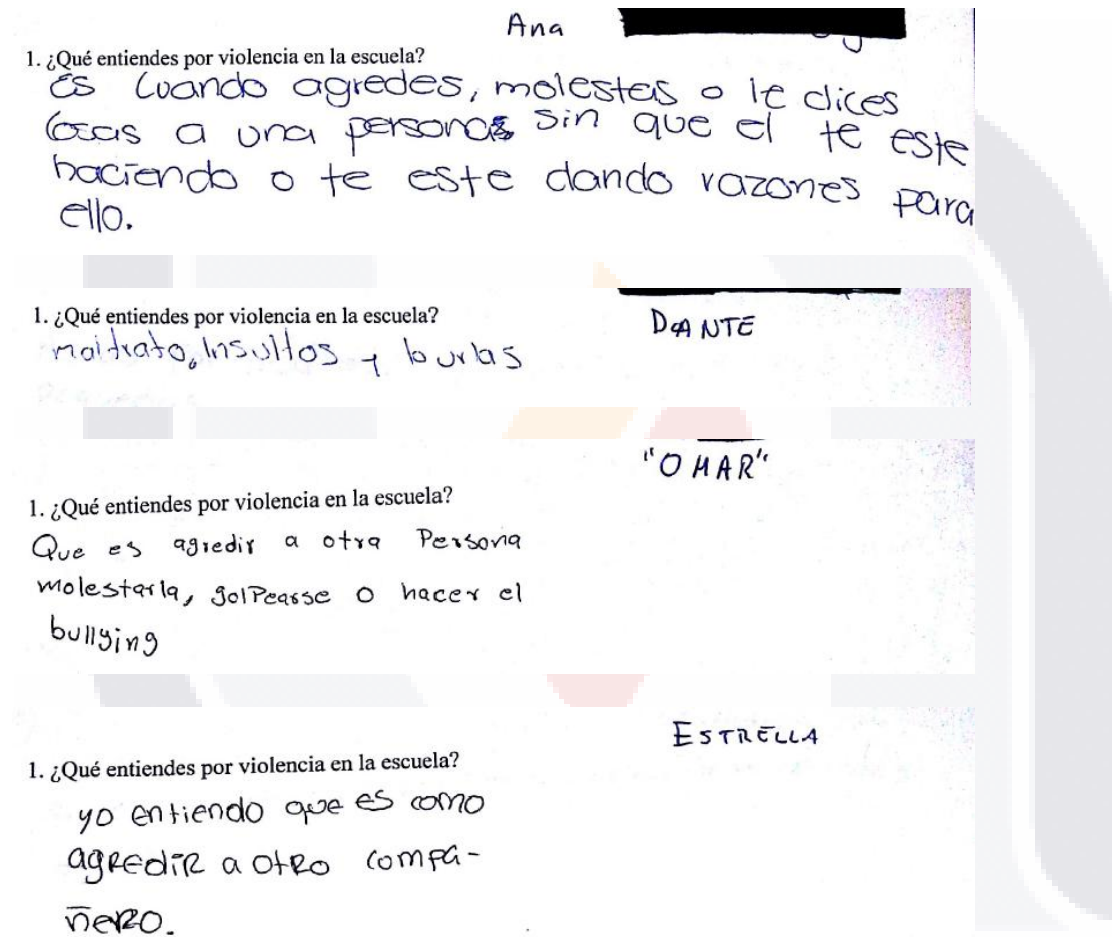 Ana
1. ¿Qué entiendes por violencia en la escuela?
Es cuando agredes, molestas o le dices
cosas a una persona sin que el te este
haciendo o te este dando razones para
ello.
1. ¿Qué entiendes por violencia en la escuela?
DANTE
maltrato, Insultos y burlas
"OMAR"
1. ¿Qué entiendes por violencia en la escuela?
Que es agredir a otra Persona
molestarla, golpearse o hacer el
bullying
ESTRELLA
1. ¿Qué entiendes por violencia en la escuela?
yo entiendo que es como
agredir a otro compa-
ñero.